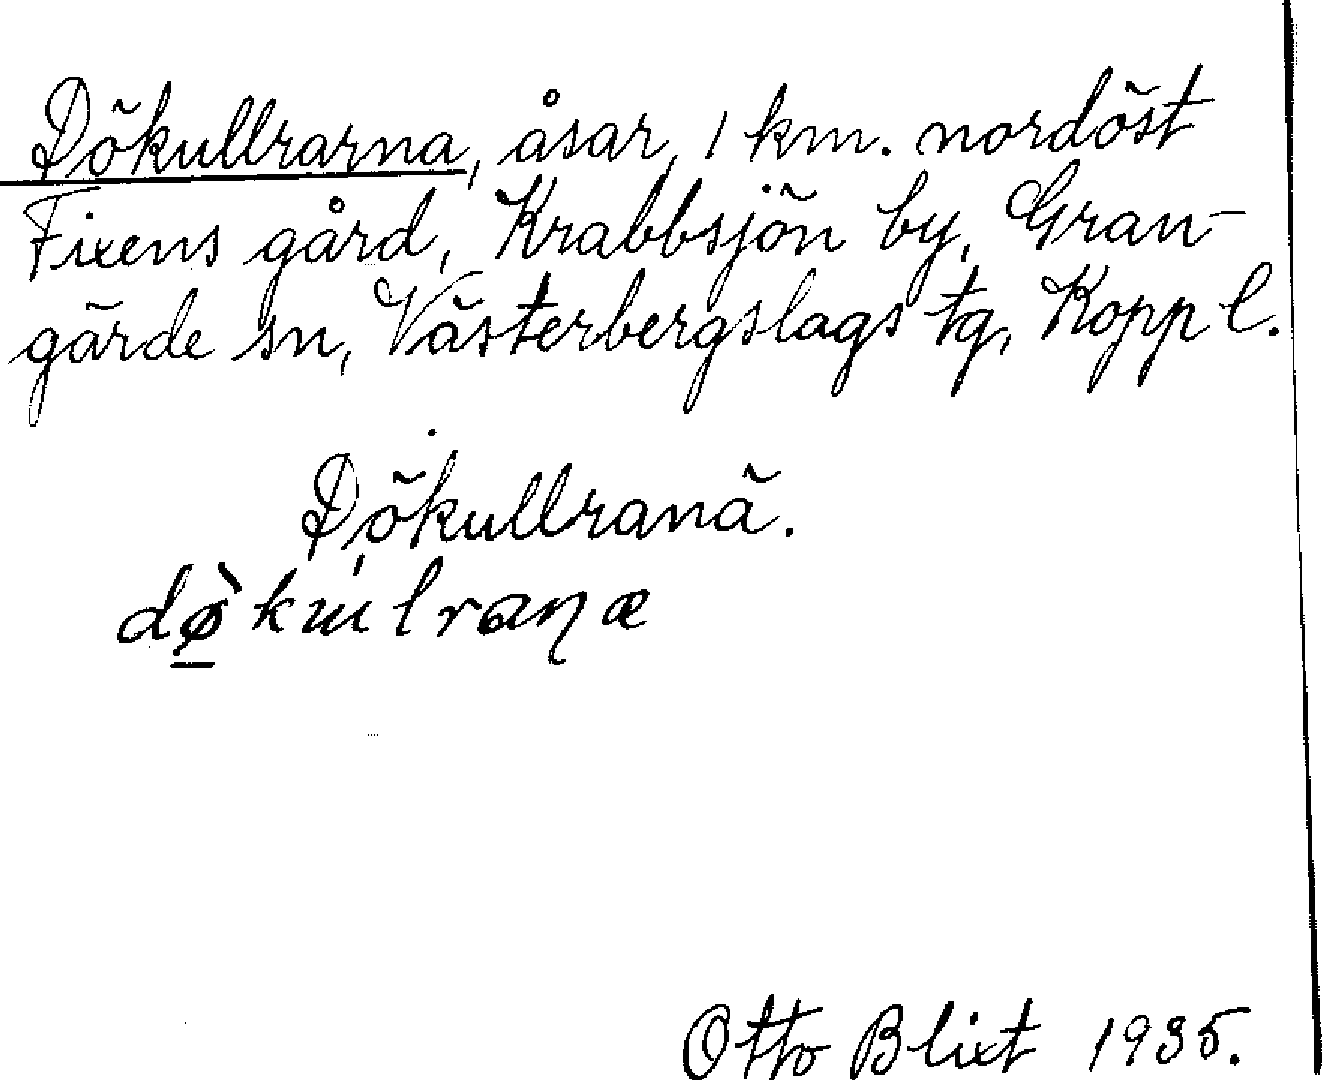 Dökullrarna, åsar, 1 km. nordöst
Fixens gård, Krabbsjön by, Gran-
gärde sn, Västerbergslags tg, Kopp l.
Dökullranä.
dø̀kɯlranæ
Otto Blixt 1935.